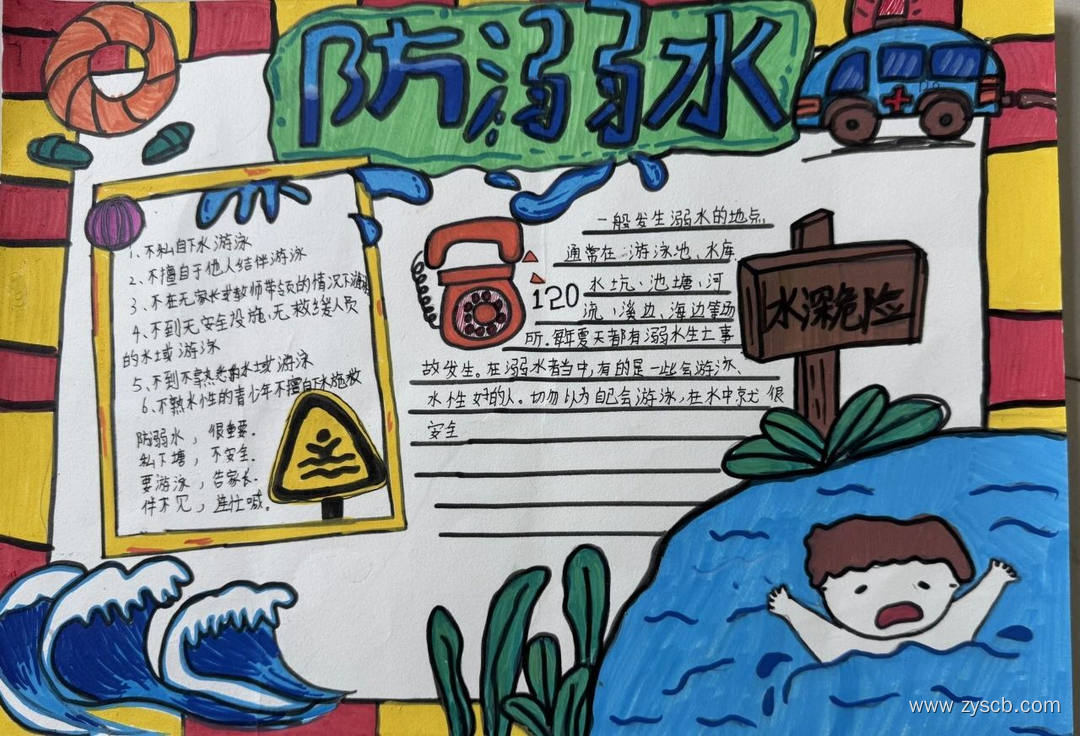 防溺水
1、不私自下水游泳
2、不擅自于他人结伴游泳
3、不在无家长或教师带领的情况下游泳
4、不到无安全设施、无救援人员
的水域游泳
5、不到不熟悉的水域游泳
6、不熟水性的青少年不擅自下水施救
防溺水，很重要.
私下塘，不安全.
要游泳，告家长.
伴不见，连忙喊.
120
一般发生溺水的地点,
通常在:游泳池、水库、
水坑、池塘、河
流、溪边、海边等场
所.每年夏天都有溺水
故发生.在溺水者当中,有的是一些会游泳、
水性好的人.切勿以为自己会游泳,在水中就 很
安全
水深危险
www.zyscb.com